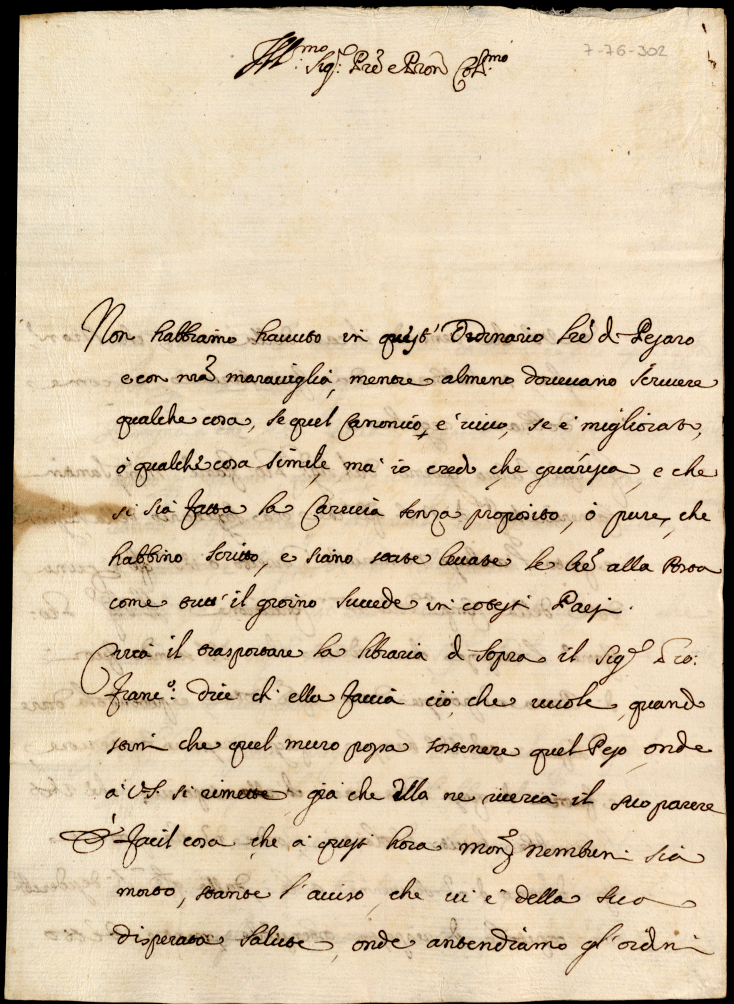 7-76-302
Ill.mo Sig.r Pré e Pron Col.mo
Non habbiamo havuto in quest' Ordinario lre di Pesaro
e con nra maraviglia, mentre almeno dovevano scrivere
qualche cosa, se quel Canonico e' vivo, se e' migliorato,
ò qualche cosa simile, ma' io credo che guarisca, e che
si sia fatta la Carriera senza proposito, ò pure, che
habbino scritto, e siano state levate le lre alla Posta
come tutt' il giorno succede in cotesti Paesi.
Circa il trasportare la libraria di sopra il Sig.r Gio:
Franc.o: dice ch' ella faccia ciò, che vuole, quando
stimi che quel muro possa sostenere quel Peso, onde
à V.S. si rimette, già che Ella ne ricerca il suo parere
È facil cosa che à quest' hora Mons.r Nembrini sia
morto, stante l' aviso, che vi e' della sua
disperata salute, onde attendiamo gl' ordini